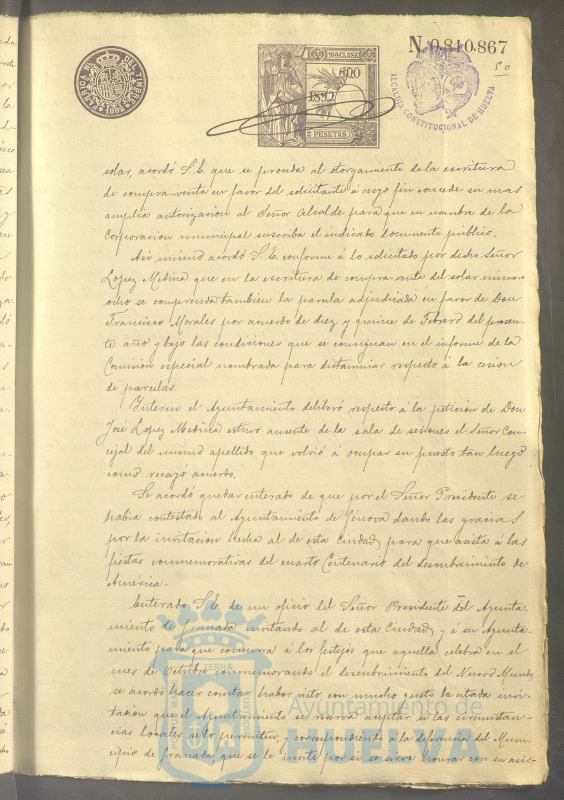 N. 0.810.867
50
TIMBRE DEL ESTADO
1892
10ª CLASE
1892
2 PESETAS
ALCALDIA CONSTITUCIONAL DE HUELVA
solar, acordó S.E. que se proceda al otorgamiento de la escritura
de compra-venta en favor del solicitante á cuyo fin concede su mas
amplia autorización al Señor Alcalde para que en nombre de la
Corporación municipal suscriba el indicado documento público.
Asi mismo acordó S.E. conforme á lo solicitado por dicho Señor
Lopez Medina que en la escritura de compra-venta del solar número
ocho se comprenda tambien la parcela adjudicada en favor de Don
Francisco Morales por acuerdo de diez y quince de Febrero del presen-
te año y bajo las condiciones que se consignan en el informe de la
Comisión especial nombrada para dictaminar respecto á la cesion
de parcelas.
Interin el Ayuntamiento deliberó respecto á la petición de Don
José Lopez Medina estuvo ausente de la sala de sesiones el Señor Con-
cejal del mismo apellido que volvió á ocupar su puesto tan luego
como recayó acuerdo.
Se acordó quedar enterado de que por el Señor Presidente se
habia contestado al Ayuntamiento de Génova dando las gracias
por la invitacion hecha al de esta Ciudad para que asista á las
fiestas conmemorativas del cuarto Centenario del descubrimiento de
América.
Enterado S.E. de un oficio del Señor Presidente del Ayunta-
miento de Granada invitando al de esta Ciudad y á su Ayunta-
miento para que concurra á los festejos que aquella celebra en el
mes de Octubre conmemorando el descubrimiento del Nuevo Mundo,
se acordó hacer constar haber visto con mucho gusto la citada invi-
tación que el Ayuntamiento se reserva aceptar si las circunstan-
cias locales se lo permiten, y correspondiendo á la deferencia del Muni-
cipio de Granada, que se le invite por si se sirve honrar con su asis-
Ayuntamiento de
HUELVA